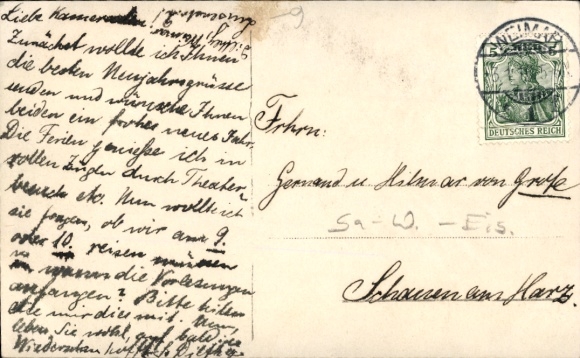 Liebe Kameraden!
Zunächst wollte ich Ihnen
die besten Neujahrsgrüsse
senden und wünsche Ihnen
beiden ein frohes neues Jahr.
Die Ferien genieße ich in
vollen Zügen durch Theater-
besuch etc. Nun wollt ich
sie fragen, ob wir am 9.
oder 10. reisen müssen
wann die Vorlesungen
anfangen? Bitte teilen
Sie mir dies mit. Nun,
leben Sie wohl, auf baldiges
Wiedersehen hofft
-9
WEIMAR
1
DEUTSCHES REICH
Frhrn:
Gernand u Hilmar von Große
Sa-W. - Eis.
Schauen am Harz.